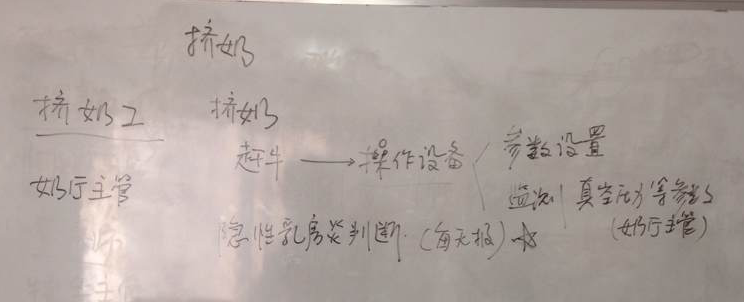 挤奶
挤奶工 挤奶
赶牛 → 操作设备 参数设置
监测 真空压力等参数
奶厅主管 (奶厅主管)
隐性乳房炎判断 (每天报)